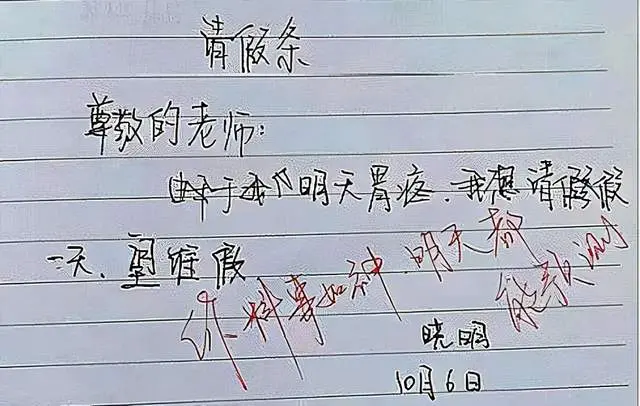 请假条
尊敬的老师:
由于我明天胃疼.我想请假假
一天、望准假
你料事如神.明天都
能预测
晓明
10月6日